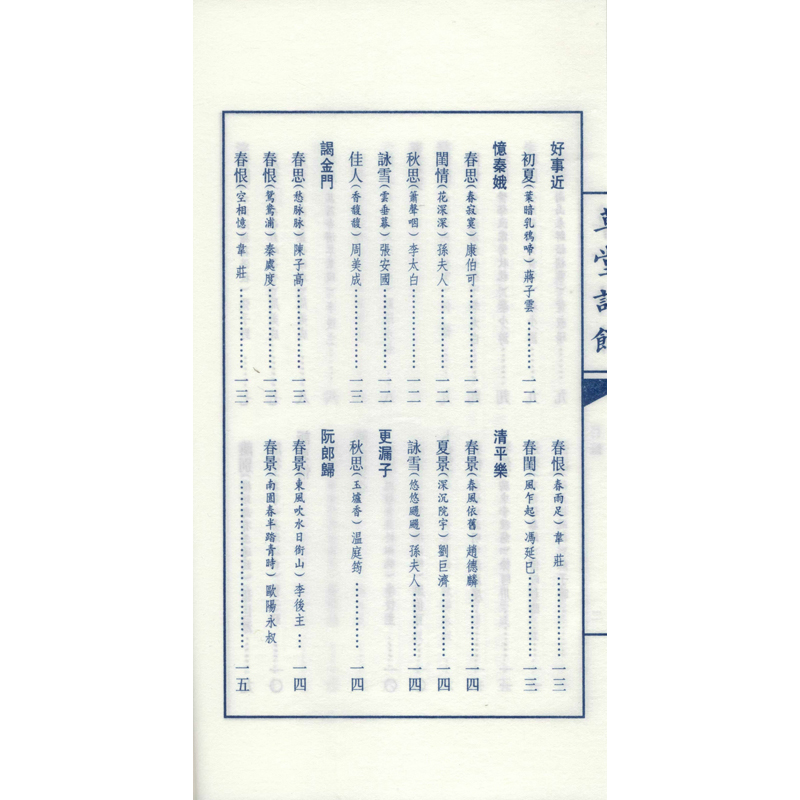 草堂詩餘
好事近
初夏(葉暗乳鴉啼)蔣子雲………一二
憶秦娥
春思(春寂寞)康伯可………一二
閨情(花深深)孫夫人………一二
秋思(簫聲咽)李太白………一二
詠雪(雲垂幕)張安國………一二
佳人(香馥馥)周美成………一三
謁金門
春思(愁脉脉)陳子高………一三
春恨(鴛鴦浦)秦處度………一三
春恨(空相憶)韋 莊………一三
春恨(春雨足)韋 莊………一三
春閨(風乍起)馮延巳………一三
清平樂
春景(春風依舊)趙德麟………一四
夏景(深沉院宇)劉巨濟………一四
詠雪(悠悠颺颺)孫夫人………一四
更漏子
秋思(玉爐香)溫庭筠………一四
阮郎歸
春景(東風吹水日銜山)李後主…一四
春景(南園春半踏青時)歐陽永叔
………一五